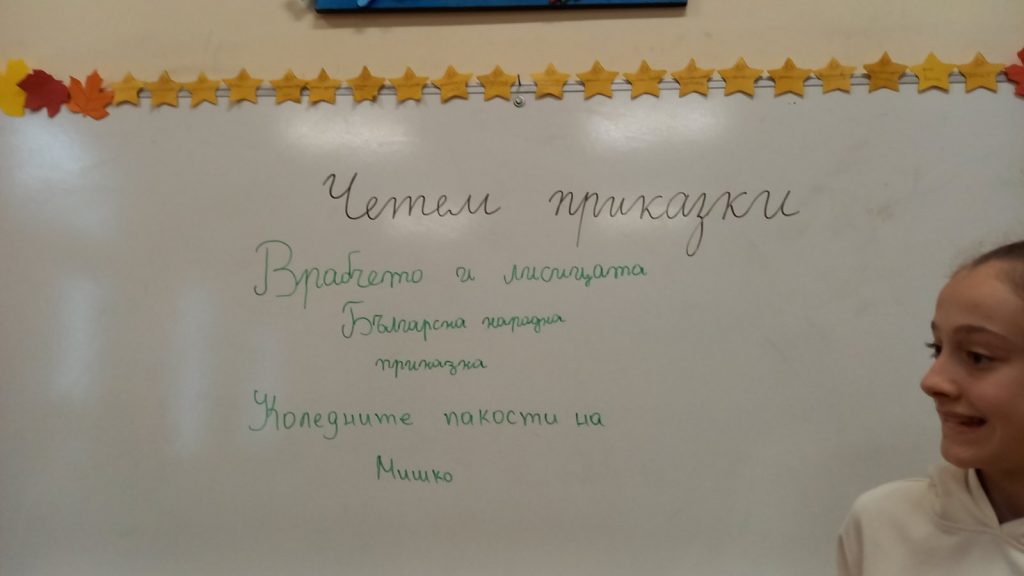 Четем приказки
Врабчето и лисицата
Българска народна
приказка
Коледните пакости на
Мишко